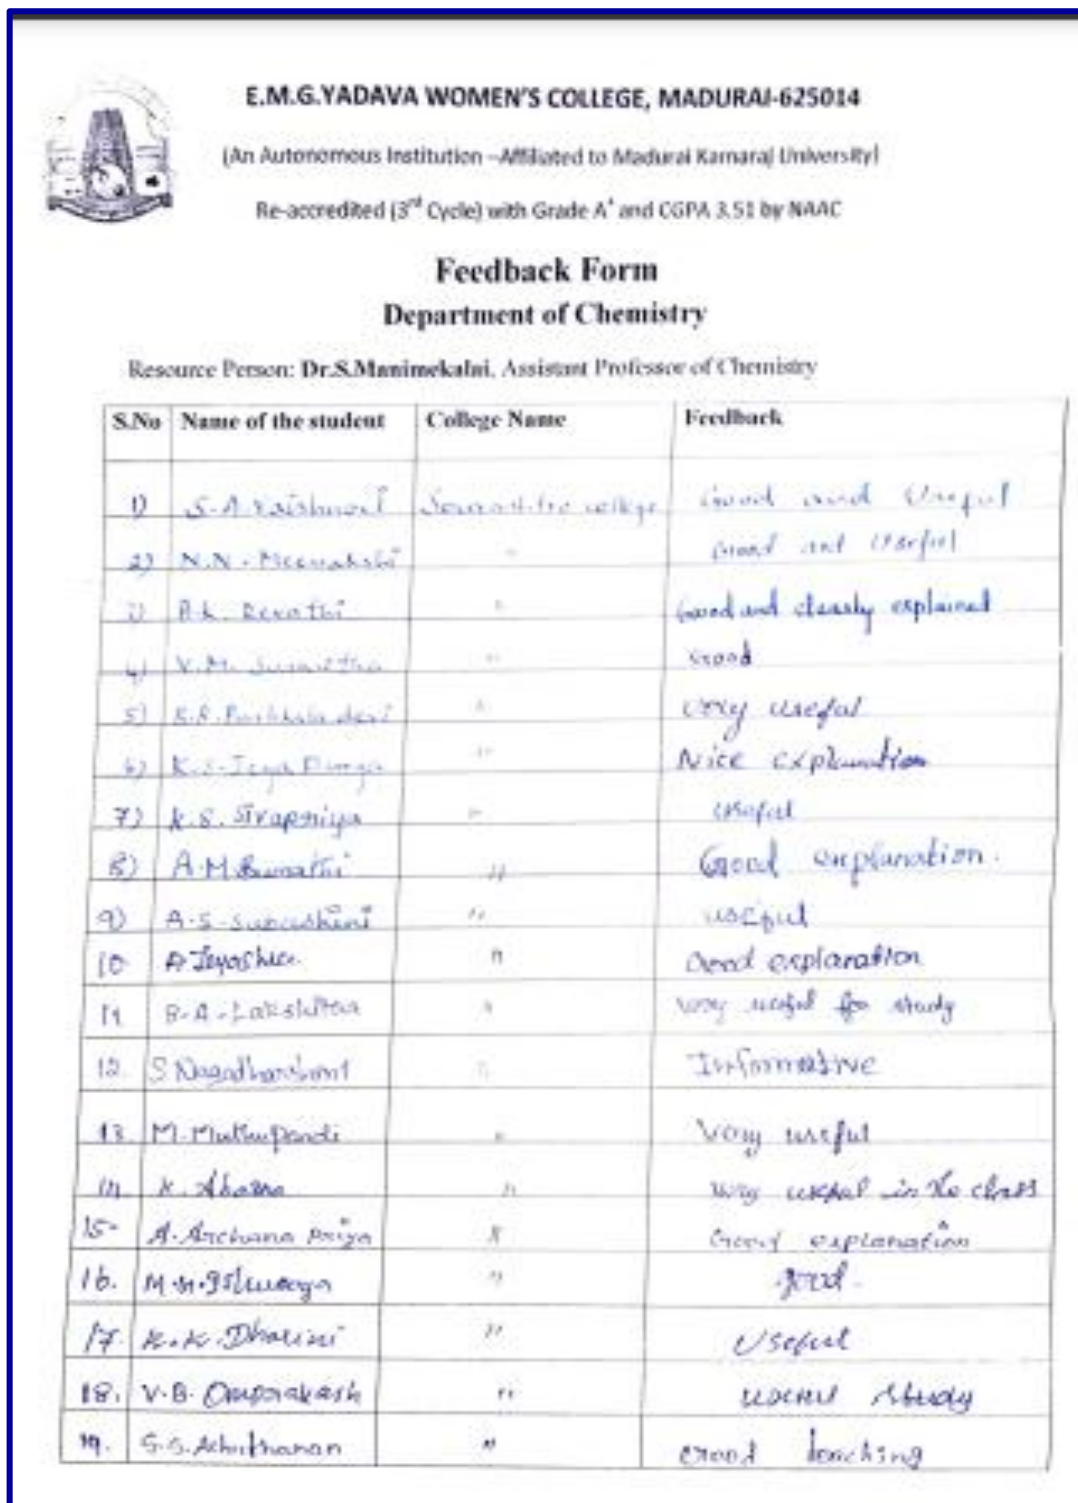 E.M.G.YADAVA WOMEN'S COLLEGE, MADURAI-625014
(An Autonomous Institution –Affiliated to Madurai Kamaraj University)
Re-accredited (3rd Cycle) with Grade A+ and CGPA 3.51 by NAAC
Feedback Form
Department of Chemistry
Resource Person: Dr.S.Manimekalai, Assistant Professor of Chemistry
S.No Name of the student College Name Feedback
1) S.A. Vaishnavi college Good and Useful
2) N.N. Meenakshi " Good and Useful
3) Revathi " Good and clearly explained
4) V.M. " Good
5) devi " very useful
6) K.S. Jeya Durga " Nice explanation
7) K.S. Sivapriya " useful
8) A.M " Good explanation.
9) A.S. Subashini " useful
10 A Jeyashree " Good explanation
11 B.A. Lakshitha " very useful for study
12. S Nagadharshini " Informative
13. M. Muthupandi " Very useful
14. K. " very useful in the class
15. A. Archana Priya " Good explanation
16. M. " good.
17. K.K. Dharini " Useful
18. V.B. Omprakash " study
19. S.S. " Good teaching